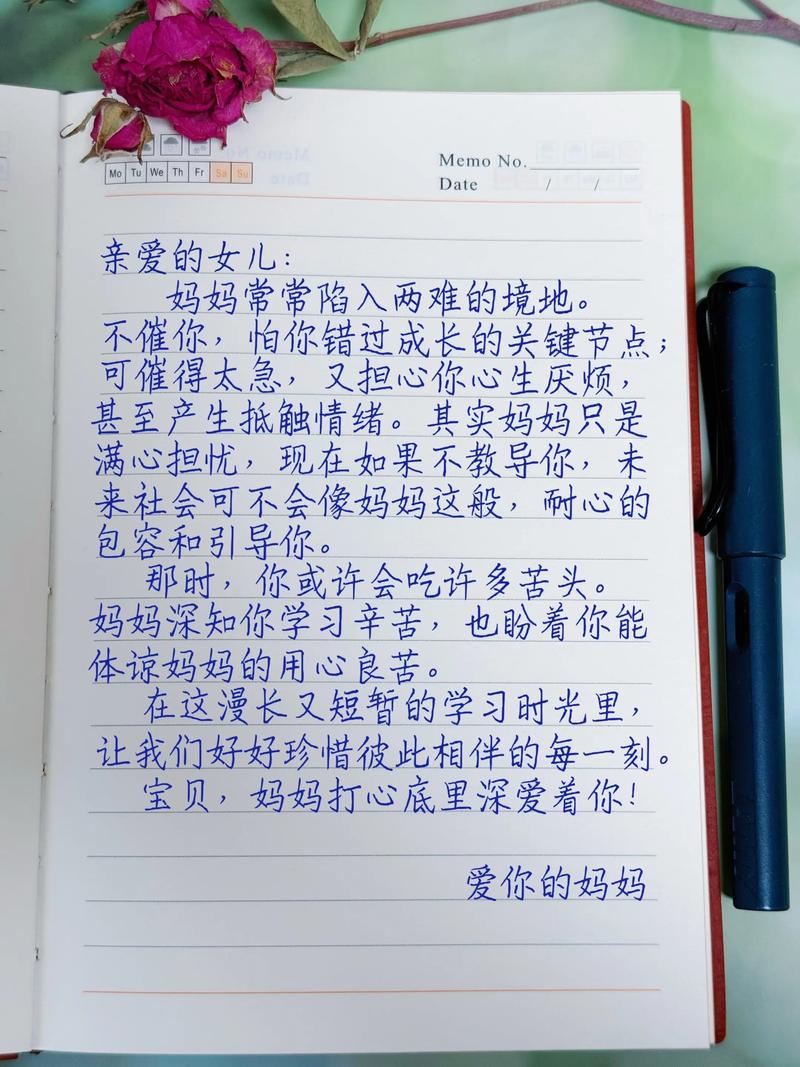 Memo No.
Mo Tu We Th Fr Sa Su
Date / /
亲爱的女儿：
妈妈常常陷入两难的境地。
不催你，怕你错过成长的关键节点；
可催得太急，又担心你心生厌烦，
甚至产生抵触情绪。其实妈妈只是
满心担忧，现在如果不教导你，未
来社会可不会像妈妈这般，耐心的
包容和引导你。
那时，你或许会吃许多苦头。
妈妈深知你学习辛苦，也盼着你能
体谅妈妈的用心良苦。
在这漫长又短暂的学习时光里，
让我们好好珍惜彼此相伴的每一刻。
宝贝，妈妈打心底里深爱着你！
爱你的妈妈